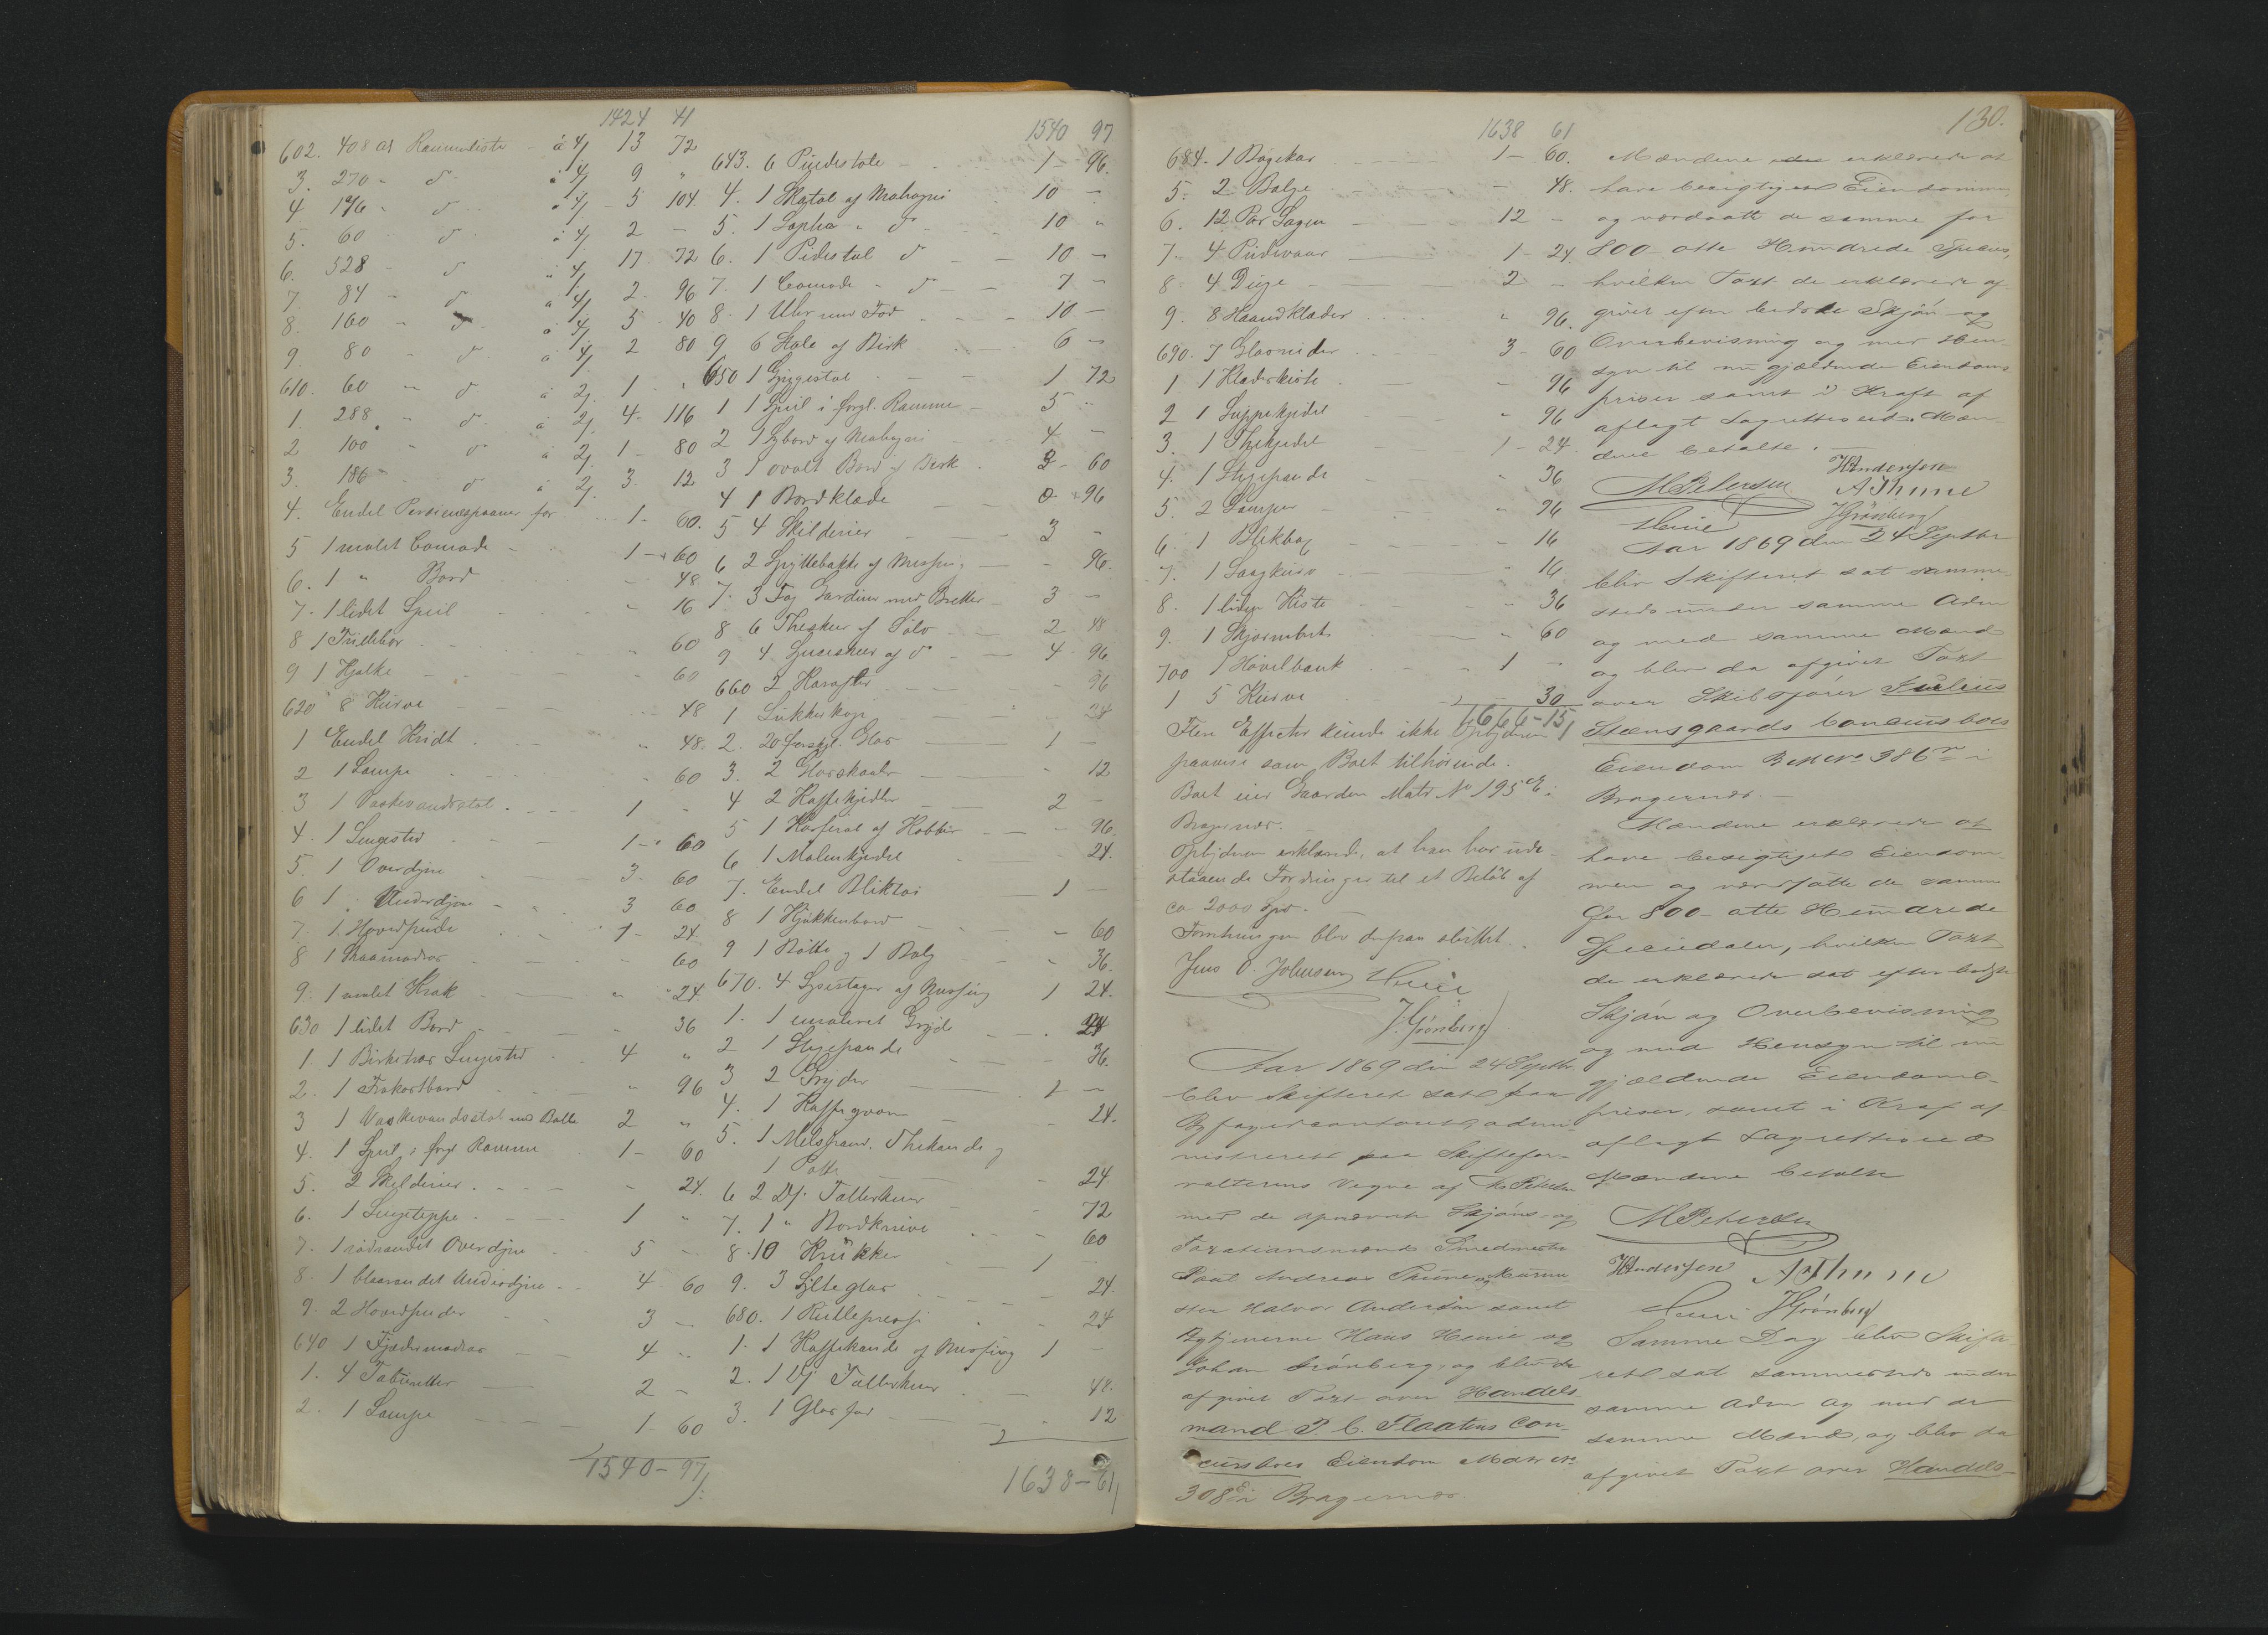 1424 41
602. 408 al Rammeliste - à 4/ 13 72
3. 270 - d - à 4/ 9 "
4 176 - d - à 4/ - 5 104
5. 60 - d - à 4/ 2 -
6. 528 - d à 4/ 17 72
7. 84 - d à 4/ 2 - 96
8. 160 - d à 4/ 5 - 40
9. 80 - d à 4/ 2 80
610. 60 - d à 2/ 1 - "
1. 288 - d à 2/ 4 - 116
2 100 " d à 2/ 1 - 80
3. 186 - d à 2/ 3. 12
4. Endel for 1 - 60.
5 1 malet Comode - 1 - 60
6. 1 " Bord - 48
7. 1 lidet Speil - 16
8 1 Trillebør 60
9 1 Hjælke - 60
620 8 Kurve - 48
1 Endel Kridt . " 48.
2 1 Lampe 60
3 1 Vaskevandsstol . 1 -
4. 1 Sengested 1 - 60
5. 1 Overdyne 3. 60
6 1 Underdyne - 3 60
7. 1 Hovedpude 1 - 24.
8 1 Straamadras 60
9. 1 malet Krak " 24.
630 1 lidet Bord - 36
1. 1 Birketræs Sengested 4 "
2. 1 Frokostbord " 96
3 1 Vaskevandsstol med Balle 2 "
4. 1 Speil i forgl. Ramme 1 - 60
5. 2 Skilderier. - 24.
6. 1 Sengeteppe . 1 "
7. 1 rødrandet Overdyne 5 -
8. 1 blaarandet Underdyne - 4 60
9. 2 Hovedpuder 3 -
640 1 Fjædermadras 4 -
1. 4 Tabouretter 2 -
2. 1 Lampe 1 - 60
1540 - 97/:
1540 97
643. 6 Pindestole - 1 - 96.
4. 1 Skatol af Mahogni 10 -
5. 1 Sopha " d - 10 "
6. 1 Pidestal d - 10 -
7. 1 Comode - d - 7 -
8. 1 Uhr med Fod 10 -
9 6 Stole af Birk 6 -
650 1 Gyngestol 1 72
1 1 Speil i forgl. Ramme - 5 -
2 1 Sybord af Mahogni 4 -
3 1 ovalt Bord af Birk 3 - 60
4 1 Bordklæde 0 - 96
5 4 Skilderier 3 -
6 2 Spyttebakke af Messing - 96.
7. 3 Fag Gardiner med Bretter 3 -
8 6 Theskeer af Sølv 2 48
9 4 Spiseskeer af d - 4 - 96
660 2 Karafler - 96
1 Sukkerkop - 24
2. 20 forskjl. Glas 1 -
3. 2 Glasskaale 12
4 2 Kaffekjedler 2 -
5 1 Kasserol af Kobber - 96.
6 1 Malmkjedel 24.
7. Endel Bliktøi 1 -
8 1 Kjøkkenbord - 60
9 1 Bøtte og 1 Balg - 36.
670. 4 Lysestager af Messing 1 24.
1. 1 emaleret Gryde - 24
2 1 Stegepande 36.
3 2 Gryder 1 -
4. 1 Kaffeqværn - 24.
5. 1 Melspand. Thekande og
1 Potte - 24
6 2 Ds. Tallerkener 72
7. 1 " Bordknive 60
8. 10 Krukker 1 -
9. 3 Sylteglas 24.
680. 1 24
1. 1 Kaffekande af Messing 1 -
2. 1 Ds Tallerkener 48.
3. 1 Glasfad 12
1638 - 61/
130.
1638 61
684. 1 Bøgekar 1 - 60.
5. 2 Balge - 48.
6. 12 Par Lagen 12 -
7. 4 Pudevaar 1 - 24.
8 4 Duge 2 -
9. 8 Haandklæder " 96.
690. 7 3 - 60
1 1 Klædeskiste - 96
2 1 Suppekjedel " 96
3. 1 Thekjedel 1 - 24
4. 1 Stegepande " 36
5. 2 Lamper - 96
6. 1 Blikbox - 16
7. 1 - 16
8. 1 liden Kiste " 36
9. 1 Skjærmbret - 60
700 1 Høvelbænk 1 -
1 5 Kurve - 30
1666 - 15/
Flere Effecter kunde ikke Opbyderen
paavise som Boet tilhørende.
Boet eier Gaarden Matr No 195 i
Bragernæs.
Opbyderen erklærede, at han har ude-
staaende Fordringer til et Beløb af
ca 2000 Spd.
Forretningen blev derpaa sluttet.
Jens O. Johnsen Heuie
J. Grønberg
Aar 1869 den 24 Septbr
blev Skifteret sat paa
Byfogedcontoret, admi-
nistreret paa Skiftefor-
valterens Vegne af M Petersen
med de opnævnte Skjøns- og
Taxationsmænd Smedmester
Poul Andreas Thune og Murme-
ster Halvor Andersen samt
Bytjenerne Hans Heuie og
Johan Grønberg, og blev da
afgivet Taxt over Handels
mand P. C. Flaatens Con-
cursboes Eiendom Matr No
308 i Bragernæs
Mændene erklærede at
have besigtiget Eiendommen
og værdsatte de samme for
800 - otte Hundrede Specier,
hvilken Taxt de erklærede af-
givet efter bedste Skjøn og
Overbevisning og med Hen-
syn til nu gjældende Eiendoms
priser samt i Kraft af
aflagt Lagrettesed. Mæn-
dene betalte.
M Petersen H Andersen
A Thune
Heuie J Grønberg
Aar 1869 den 24 Septbr
blev Skifteret sat samme-
steds under samme Adm
og med samme Mænd
og blev da afgivet Taxt
over Skibsfører Julius
Steensgaards Concursboes
Eiendom Matr No 386 i
Bragernæs. -
Mændene erklærede at
have besigtiget Eiendom-
men og værdsatte de samme
for 800 - otte Hundrede
Speciedaler, hvilken Taxt
de erklærede sat efter bedste
Skjøn og Overbevisning
og med Hensyn til nu
gjældende Eiendoms-
priser, samt i Kraf af
aflagt Lagretteseed
Mændene betalte
M Petersen
H Andersen A Thune
Heuie J Grønberg
Samme Dag blev Skifte-
rett sat sammesteds under
samme Adm og med de
samme Mænd, og blev da
afgivet Taxt over Handels-